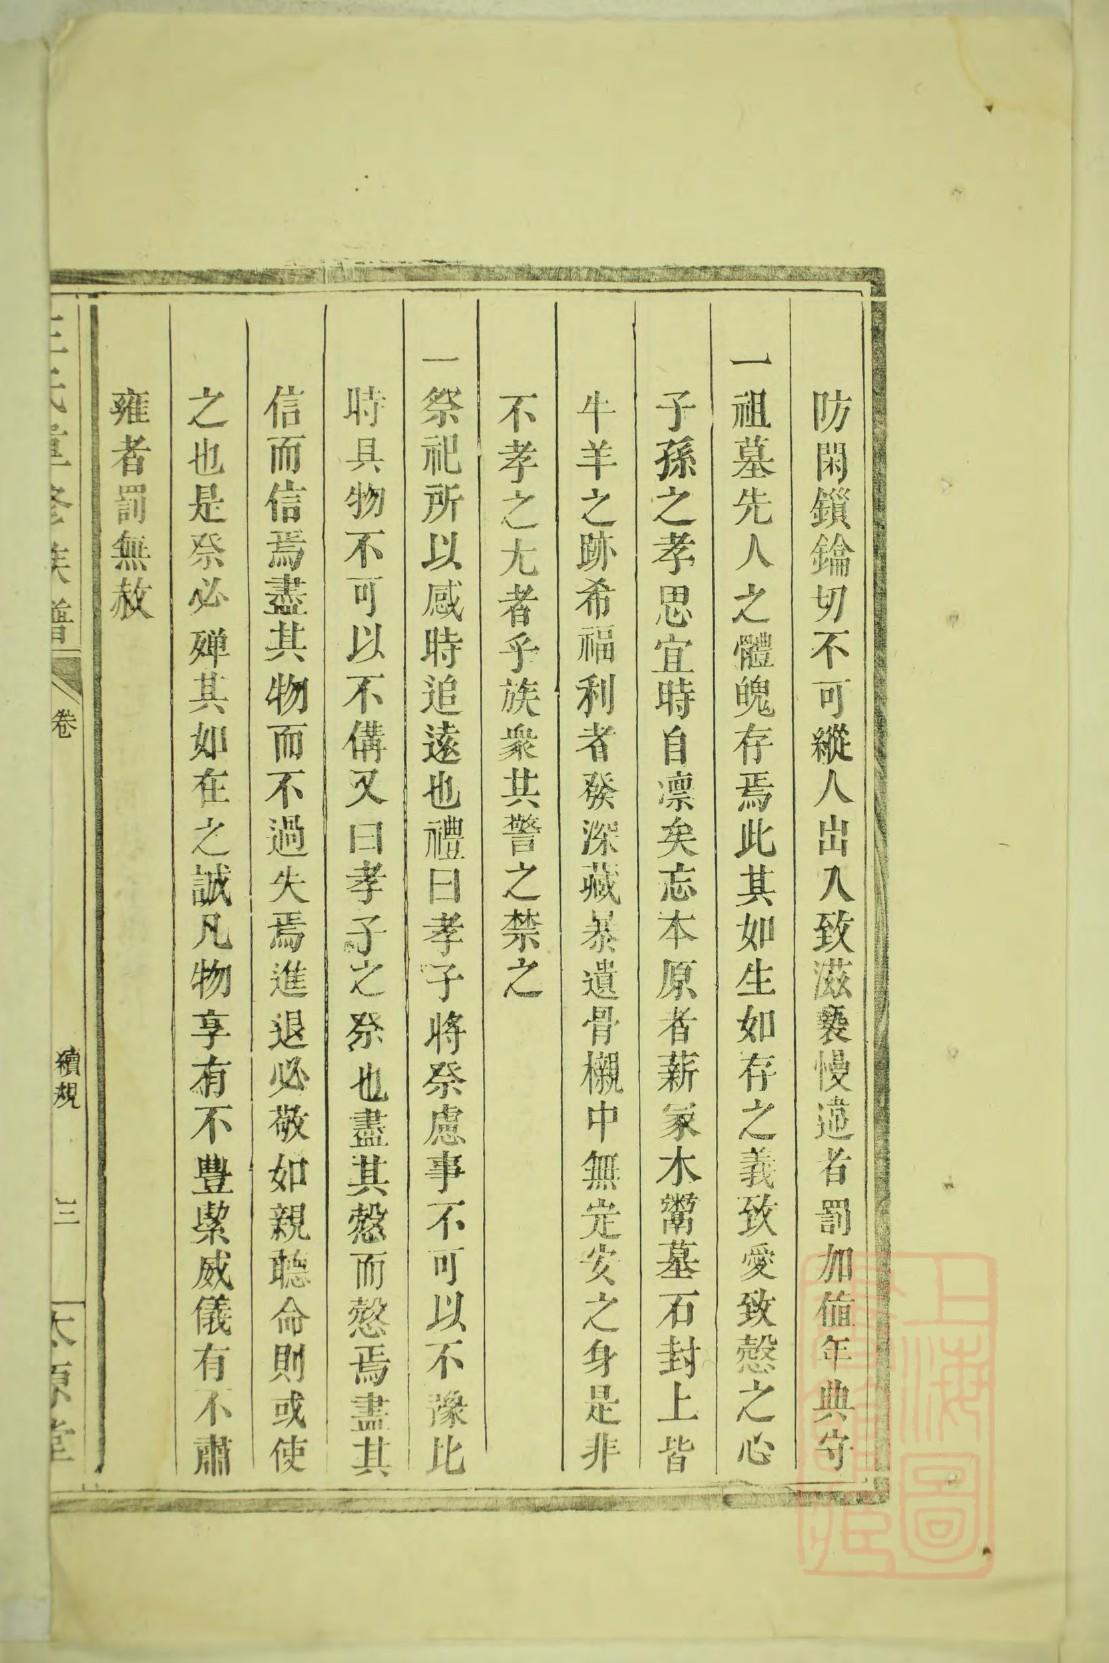 防閑鎻鑰切不可縱人出入致滋褻慢違者罰加值年典守
一祖墓先人之體魄存焉此其如生如存之義致愛致慤之心
子孫之孝思宜時自凛矣忘本原者薪冢木鬻墓石封上皆
牛羊之跡希福利者發深藏暴遺骨櫬中無定安之身是非
不孝之尤者乎族衆共警之禁之
一祭祀所以感時追遠也禮曰孝子將祭慮事不可以不豫比
時具物不可以不備又曰孝子之祭也盡其慤而慤焉盡其
信而信焉盡其物而不過失焉進退必敬如親聽命則或使
之也是祭必殫其如在之誠凡物享有不豐潔威儀有不肅
雍者罰無赦
王氏重修族譜 卷 續規 三 太原堂
上海圖書館藏